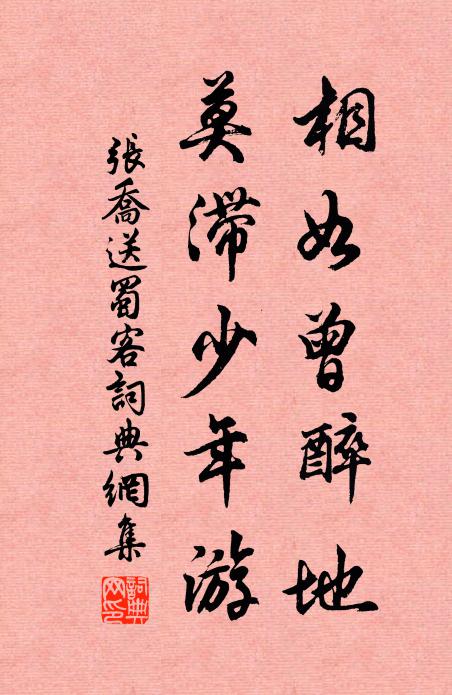 相如曾醉地
莫滞少年游
張喬送蜀客詞典網集
詞典網印